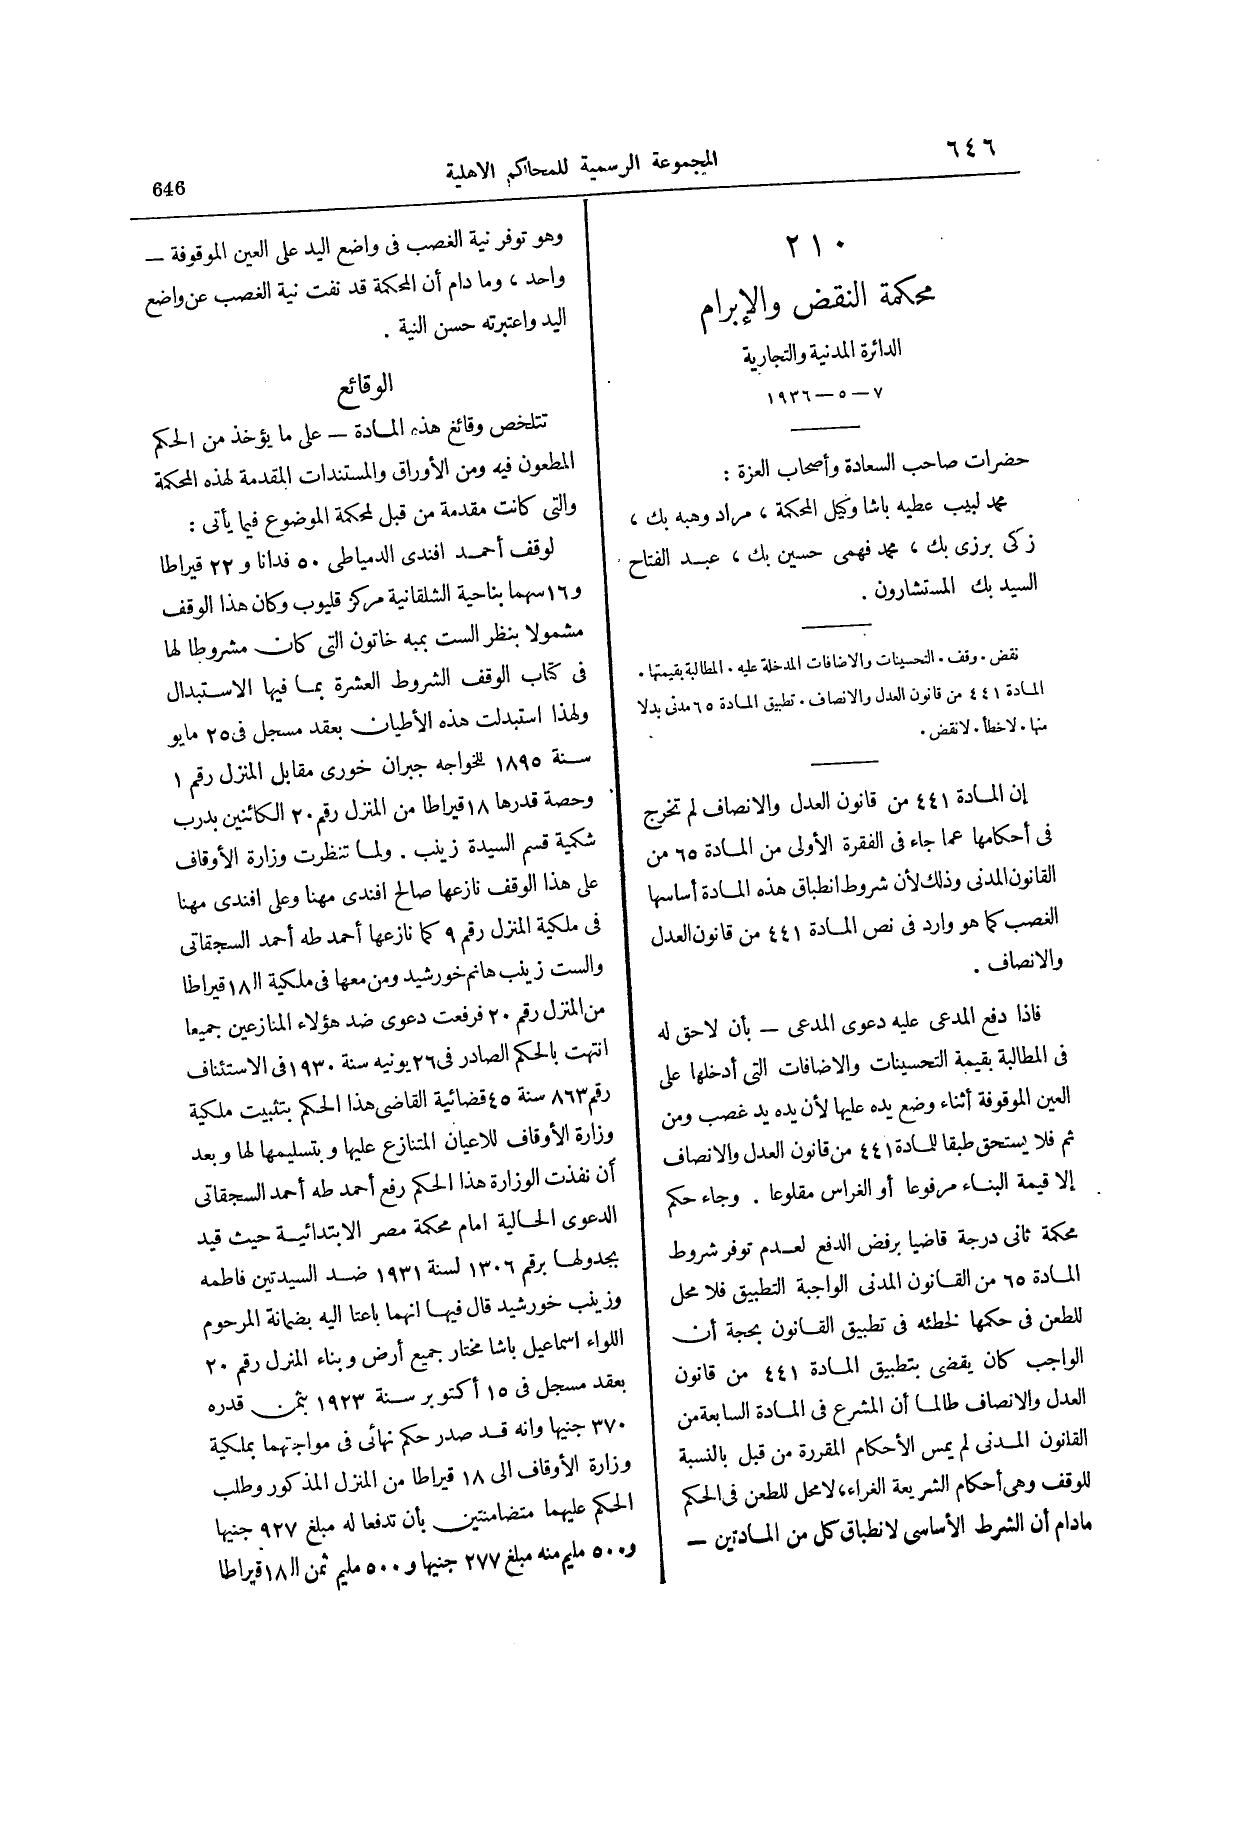 ٦٤٦
المجموعة الرسمية للمحاكم الاهلية
646
٢١٠
محكمة النقض والإبرام
الدائرة المدنية والتجارية
٧ — ٥ — ١٩٣٦
حضرات صاحب السعادة وأصحاب العزة :
محمد لبيب عطيه باشا وكيل المحكمة ، مراد وهبه بك ،
زكى برزى بك ، محمد فهمى حسين بك ، عبد الفتاح
السيد بك المستشارون .
نقض . وقف . التحسينات والاضافات المدخلة عليه . المطالبة بقيمتها .
المادة ٤٤١ من قانون العدل والانصاف . تطبيق المادة ٦٥ مدنى بدلا
منها . لاخطأ . لانقض .
إن المادة ٤٤١ من قانون العدل والانصاف لم تخرج
فى أحكامها عما جاء فى الفقرة الأولى من المادة ٦٥ من
القانون المدنى وذلك لأن شروط انطباق هذه المادة أساسها
الغصب كما هو وارد فى نص المادة ٤٤١ من قانون العدل
والانصاف .
فاذا دفع المدعى عليه دعوى المدعى — بأن لاحق له
فى المطالبة بقيمة التحسينات والاضافات التى أدخلها على
العين الموقوفة أثناء وضع يده عليها لأن يده يد غصب ومن
ثم فلا يستحق طبقا للمادة ٤٤١ من قانون العدل والانصاف
إلا قيمة البناء مرفوعا أو الغراس مقلوعا . وجاء حكم
محكمة ثانى درجة قاضيا برفض الدفع لعدم توفر شروط
المادة ٦٥ من القانون المدنى الواجبة التطبيق فلا محل
للطعن فى حكمها لخطئه فى تطبيق القانون بحجة أن
الواجب كان يقضى بتطبيق المادة ٤٤١ من قانون
العدل والانصاف طالما أن المشرع فى المادة السابعة من
القانون المدنى لم يمس الأحكام المقررة من قبل بالنسبة
للوقف وهى أحكام الشريعة الغراء، لامحل للطعن فى الحكم
مادام أن الشرط الأساسى لانطباق كل من المادتين —
وهو توفر نية الغصب فى واضع اليد على العين الموقوفة —
واحد ، وما دام أن المحكمة قد نفت نية الغصب عن واضع
اليد واعتبرته حسن النية .
الوقائع
تتلخص وقائع هذه المادة — على ما يؤخذ من الحكم
المطعون فيه ومن الأوراق والمستندات المقدمة لهذه المحكمة
والتى كانت مقدمة من قبل لمحكمة الموضوع فيما يأتى :
لوقف أحمد افندى الدمياطى ٥٠ فدانا و ٢٢ قيراطا
و١٦ سهما بناحية الشلقانية مركز قليوب وكان هذا الوقف
مشمولا بنظر الست بمبه خاتون التى كان مشروطا لها
فى كتاب الوقف الشروط العشرة بما فيها الاستبدال
ولهذا استبدلت هذه الأطيان بعقد مسجل فى ٢٥ مايو
سنة ١٨٩٥ للخواجه جبران خورى مقابل المنزل رقم ١
وحصة قدرها ١٨ قيراطا من المنزل رقم ٢٠ الكائنين بدرب
شكية قسم السيدة زينب . ولما تنظرت وزارة الأوقاف
على هذا الوقف نازعها صالح افندى مهنا وعلى افندى مهنا
فى ملكية المنزل رقم ٩ كما نازعها أحمد طه أحمد السجقاتى
والست زينب هانم خورشيد ومن معها فى ملكية الـ ١٨ قيراطا
من المنزل رقم ٢٠ فرفعت دعوى ضد هؤلاء المنازعين جميعا
انتهت بالحكم الصادر فى ٢٦ يونيه سنة ١٩٣٠ فى الاستئناف
رقم ٨٦٣ سنة ٤٥ قضائية القاضى هذا الحكم بتثبيت ملكية
وزارة الأوقاف للاعيان المتنازع عليها وبتسليمها لها وبعد
أن نفذت الوزارة هذا الحكم رفع أحمد طه أحمد السجقاتى
الدعوى الحالية امام محكمة مصر الابتدائية حيث قيد
بجدولها برقم ١٣٠٦ لسنة ١٩٣١ ضد السيدتين فاطمه
وزينب خورشيد قال فيها انهما باعتا اليه بضمانة المرحوم
اللواء اسماعيل باشا مختار جميع أرض وبناء المنزل رقم ٢٠
بعقد مسجل فى ١٥ أكتوبر سنة ١٩٢٣ بثمن قدره
٣٧٠ جنيها وانه قد صدر حكم نهائى فى مواجهتهما بملكية
وزارة الأوقاف الى ١٨ قيراطا من المنزل المذكور وطلب
الحكم عليهما متضامنتين بأن تدفعا له مبلغ ٩٢٧ جنيها
و٥٠٠ مليم منه مبلغ ٢٧٧ جنيها و ٥٠٠ مليم ثمن الـ ١٨ قيراطا